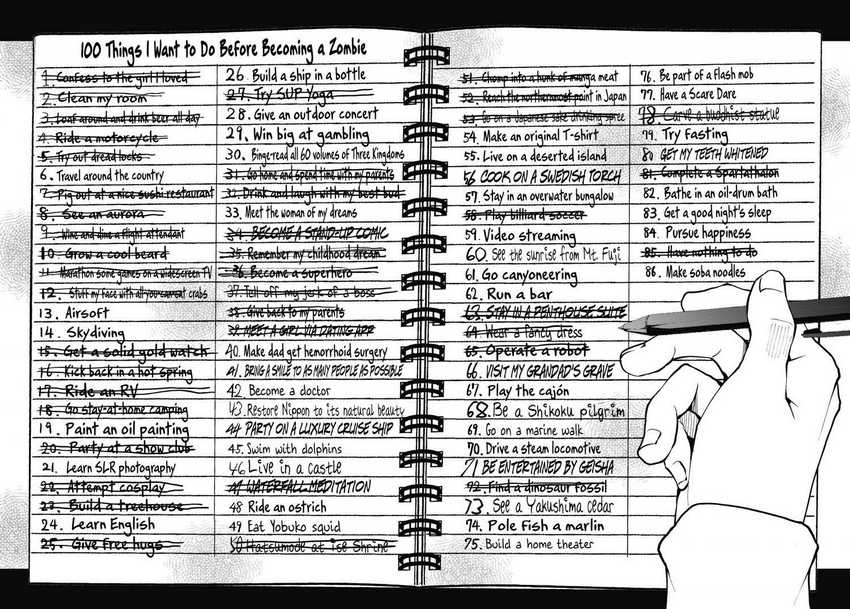 100 Things I Want to Do Before Becoming a Zombie
1. Confess to the girl I loved
2. Clean my room
3. Loaf around and drink beer all day
4. Ride a motorcycle
5. Try out dreadlocks
6. Travel around the country
7. Pig out at a nice sushi restaurant
8. See an aurora
9. Wine and dine a flight attendant
10. Grow a cool beard
11. Marathon some games on a widescreen TV
12. Stuff my face with all you can eat crabs
13. Airsoft
14. Skydiving
15. Get a solid gold watch
16. Kick back in a hot spring
17. Ride an RV
18. Go stay-at-home camping
19. Paint an oil painting
20. Party at a show club
21. Learn SLR photography
22. Attempt cosplay
23. Build a treehouse
24. Learn English
25. Give free hugs
26. Build a ship in a bottle
27. Try SUP Yoga
28. Give an outdoor concert
29. Win big at gambling
30. Binge-read all 60 volumes of Three Kingdoms
31. Go home and spend time with my parents
32. Drink and laugh with my best bud
33. Meet the woman of my dreams
34. BECOME A STAND-UP COMIC
35. Remember my childhood dream
36. Become a superhero
37. Tell off my jerk of a boss
38. Give back to my parents
39. MEET A GIRL VIA DATING APP
40. Make dad get hemorrhoid surgery
41. BRING A SMILE TO AS MANY PEOPLE AS POSSIBLE
42. Become a doctor
43. Restore Nippon to its natural beauty
44 PARTY ON A LUXURY CRUISE SHIP
45. Swim with dolphins
46 Live in a castle
47 WATERFALL MEDITATION
48 Ride an ostrich
49 Eat Yobuko squid
50 Hatsumode at Ise Shrine
51. Chomp into a hunk of manga meat
52. Reach the northernmost point in Japan
53. Go on a Japanese sake drinking spree
54. Make an original T-shirt
55. Live on a deserted island
56 COOK ON A SWEDISH TORCH
57. Stay in an overwater bungalow
58. Play billiard soccer
59. Video streaming
60. See the sunrise from Mt. Fuji
61. Go canyoneering
62. Run a bar
63. STAY IN A PENTHOUSE SUITE
64. Wear a fancy dress
65. Operate a robot
66. VISIT MY GRANDAD'S GRAVE
67. Play the cajón
68. Be a Shikoku pilgrim
69. Go on a marine walk
70. Drive a steam locomotive
71 BE ENTERTAINED BY GEISHA
72. Find a dinosaur fossil
73. See a Yakushima cedar
74. Pole Fish a marlin
75. Build a home theater
76. Be part of a flash mob
77. Have a Scare Dare
78 Carve a buddhist statue
79. Try Fasting
80 GET MY TEETH WHITENED
81. Complete a Spartathalon
82. Bathe in an oil-drum bath
83. Get a good night's sleep
84. Pursue happiness
85. Have nothing to do
86. Make soba noodles